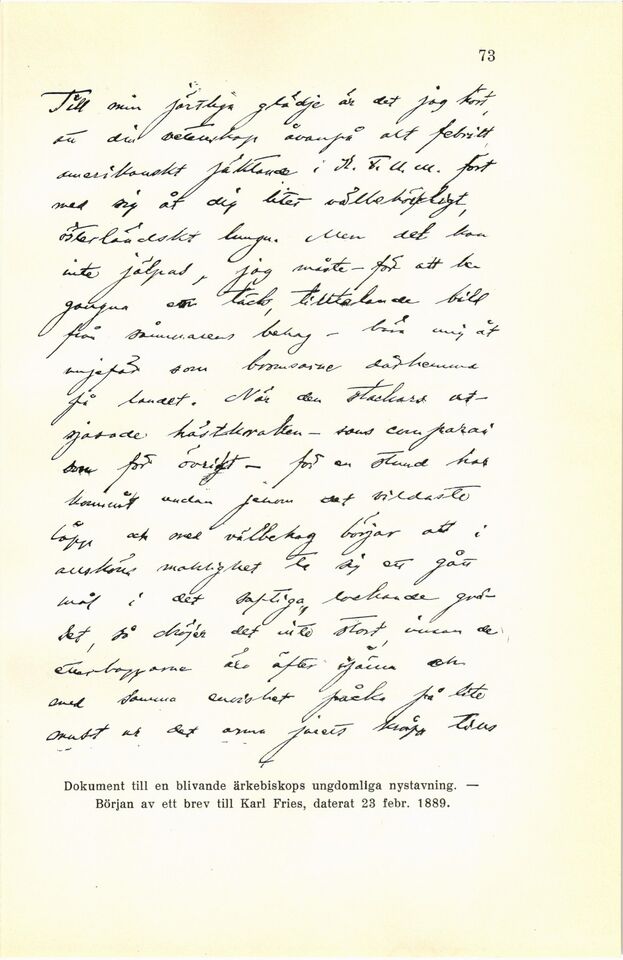 73
Till min järtliga glädje är det jag hört
att din vetenskap ovanpå alt febrilt
amerikanskt jäktande i K. F. U. M. fört
med sig åt dig litet välbehöfligt
österländskt lungn. Men det kan
inte jälpas, jag måste – för att be
gangna en täck, tilltalande bild
från sommarens behag – bära mig åt
unjefär som bromsarne därhemma
på landet. När den stackars ut-
sjasade hästkraken – sans comparai
son för övrigt – för en stund har
kommit undan jenom det vildaste
löpp och med välbehag börjar att i
allsköns maklighet te sig ett gått
mål i det saftiga, lockande grä-
set, så dröjer det inte stort, innan de
etterbaggarne äro äfter jämna och
med samma envishet påcka på lite
must ur det arma jurets kropp tills
Dokument till en blivande ärkebiskops ungdomliga nystavning. —
Början av ett brev till Karl Fries, daterat 23 febr. 1889.